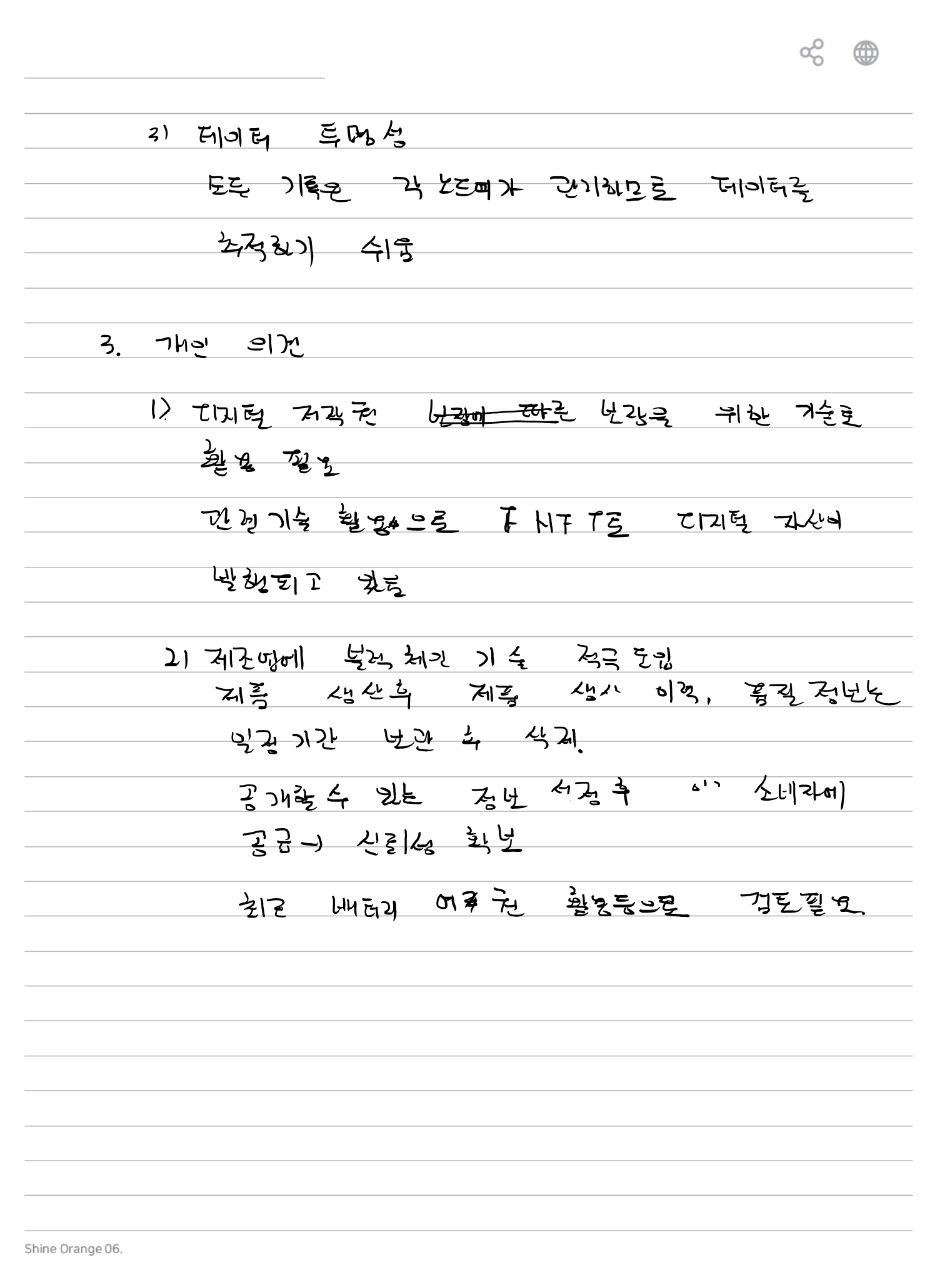 3) 데이터 투명성
모든 기록은 각 노드마다 관리하므로 데이터를
추적하기 쉬움
3. 개인 의견
1) 디지털 저작권 보장을 위한 기술로
활용 필요
관련기술 활용으로 NFT로 디지털 자산이
발행되고 있음
2) 제조업에 블럭체인 기술 적극 도입
제품 생산후 제품 생산 이력, 품질 정보는
일정기간 보관 후 삭제.
공개할 수 있는 정보 선정 후 소비자에
공급 → 신뢰성 확보
최근 배터리 여권 활용등으로 검토필요.
Shine Orange 06.